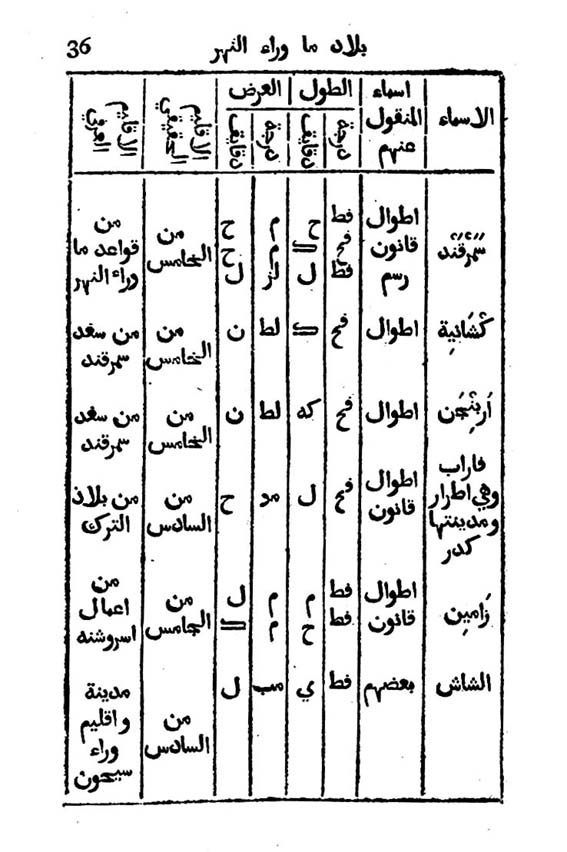 36 بلاد ما وراء النهر
الاسماء اسماء المنقول عنهم الطول العرض الاقليم الحقيقي الاقليم العرفي
درجة دقايق درجة دقايق
سمرقند اطوال فط ح م ح من الخامس من قواعد ما وراء النهر
قانون فح ك م ح
رسم فط ل لز ل
كشانية اطوال فح ك لط ن من الخامس من سغد سمرقند
اربنجن اطوال فح كه لط ن من الخامس من سغد سمرقند
فاراب وهي اطرار ومدينتها كدر اطوال قانون فح ل مد ح من السادس من بلاد الترك
زامين اطوال فط م م ل من الخامس من اعمال اسروشنه
قانون فط ح م ك
الشاش بعضهم فط ي مب ل من السادس مدينة واقليم وراء سيحون